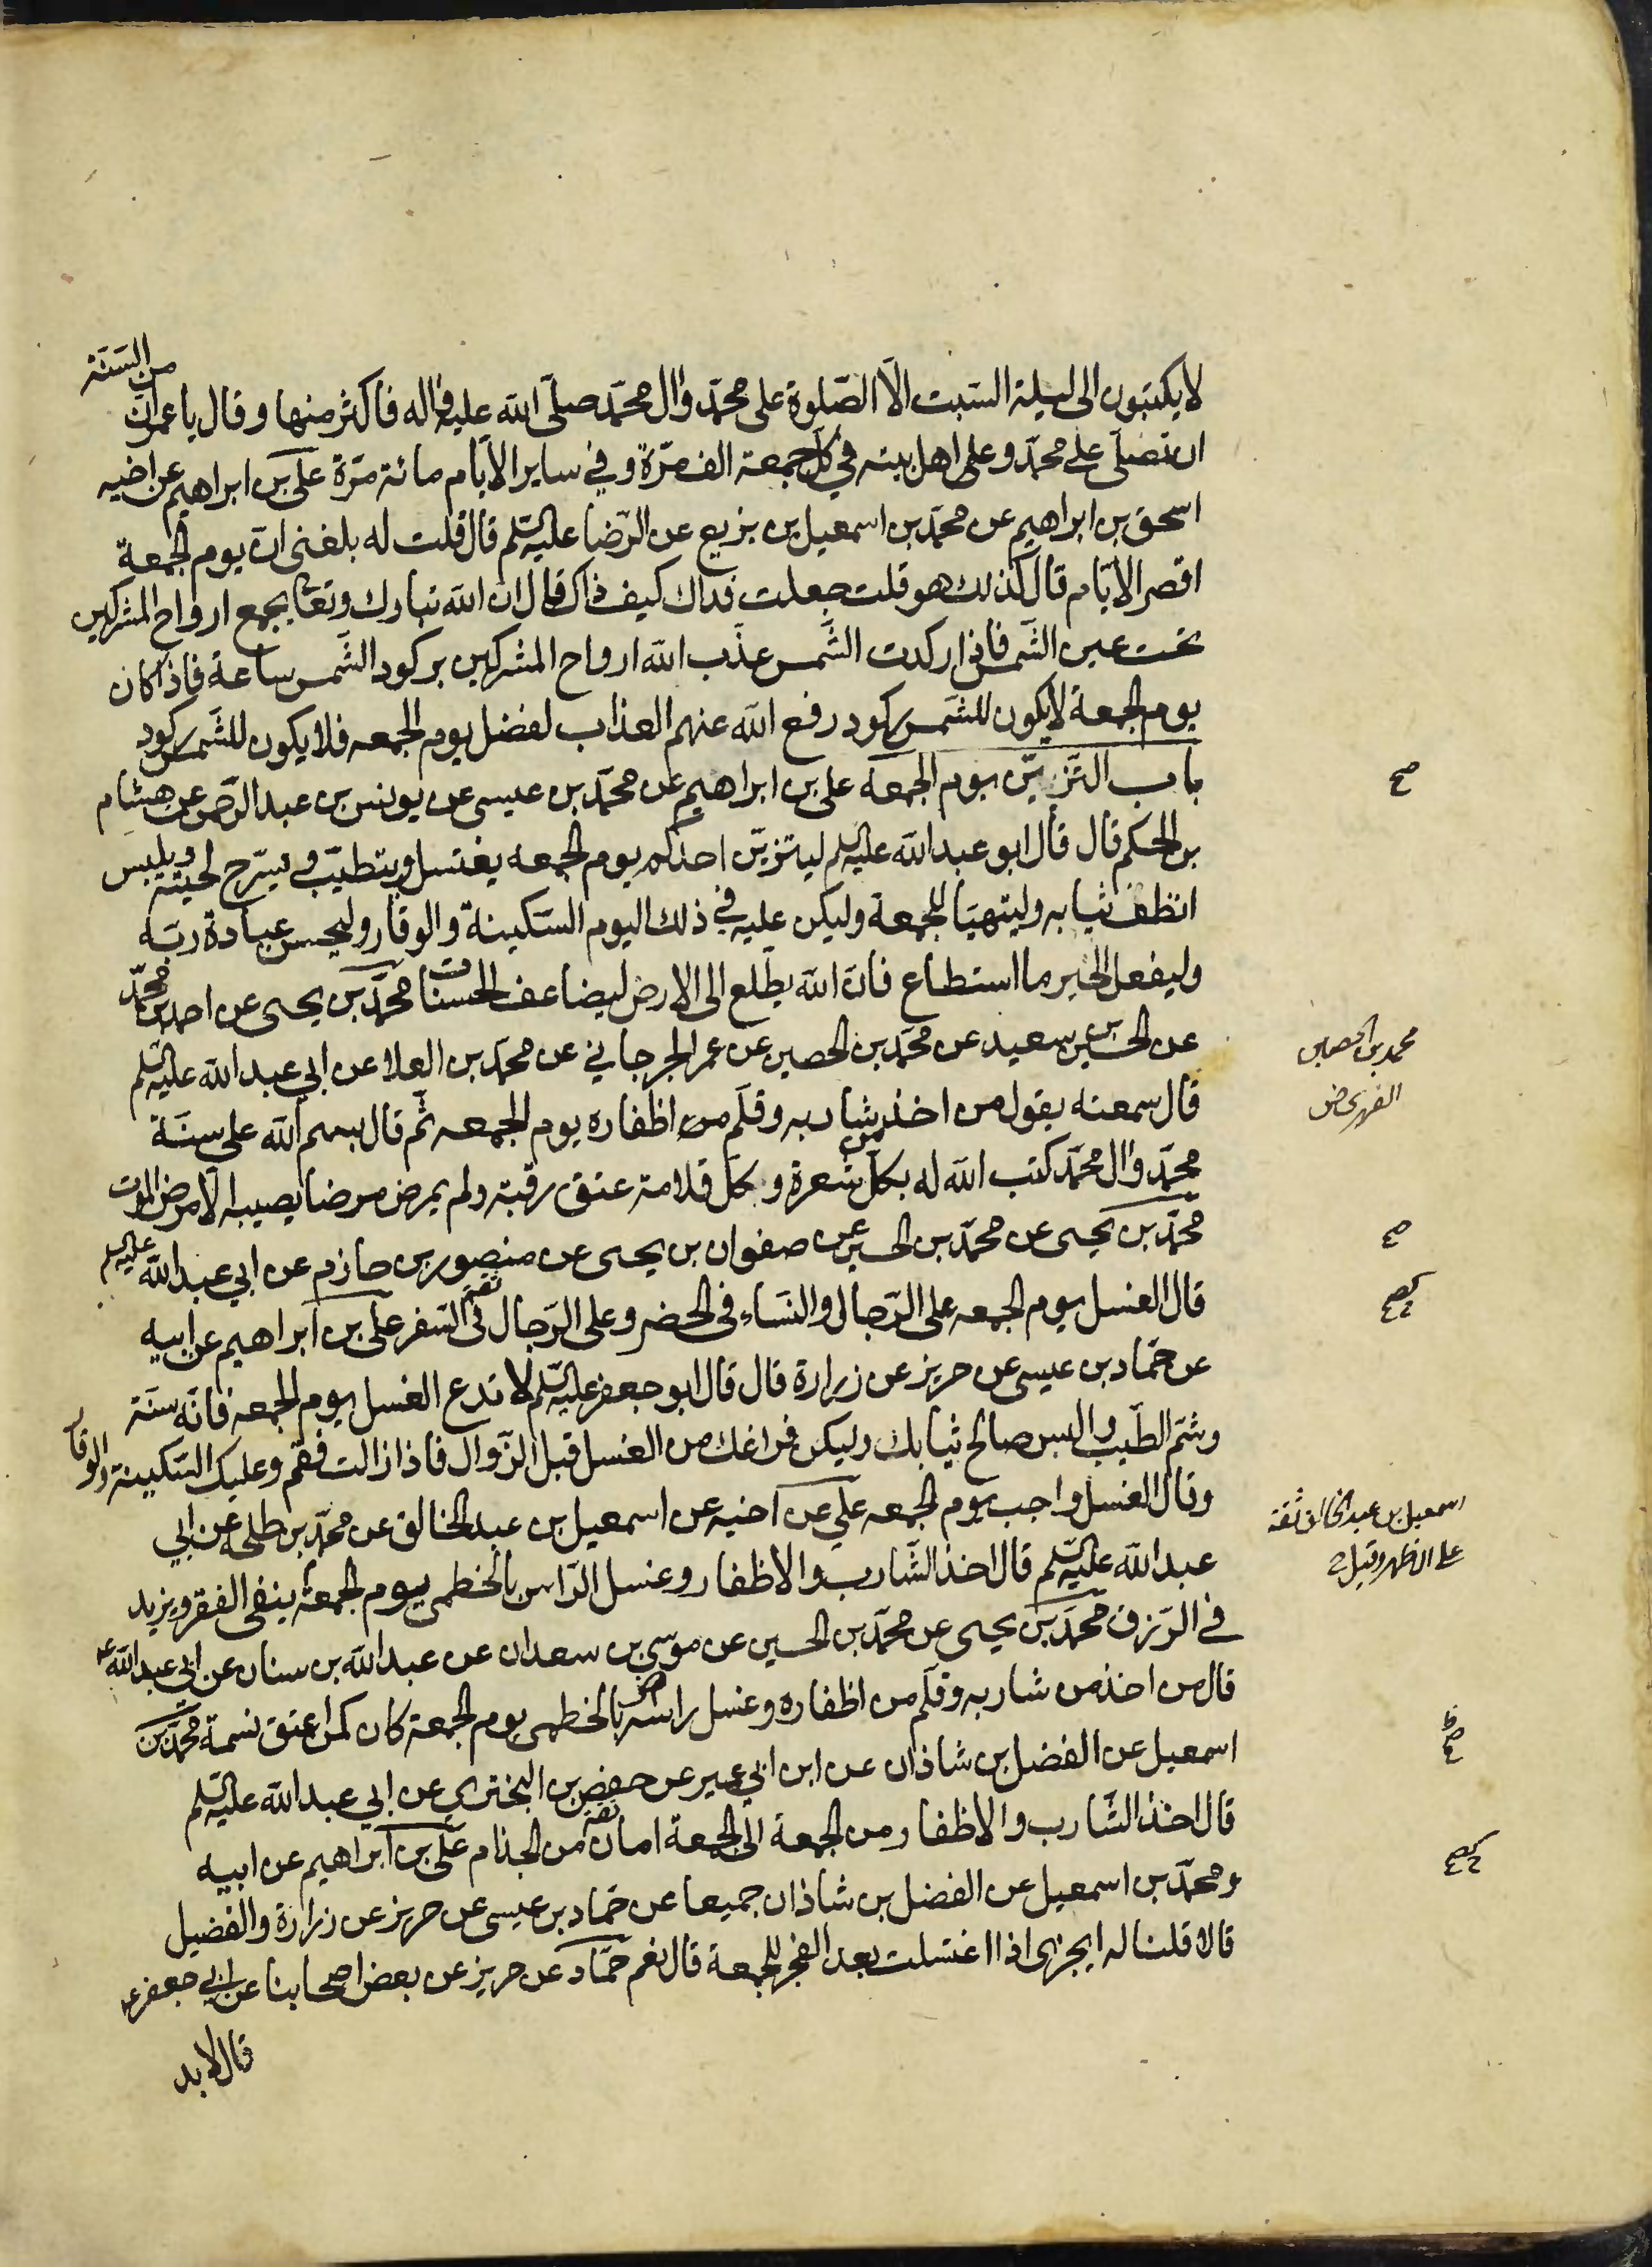 لا يكتبون الى ليلة السبت الّا الصّلوة على محمّد وال محمّد صلّى الله عليه واله فاكثر منها وقال يا عمر انّ من السّنّة
ان تصلّى على محمّد وعلى اهل بيته في كلّ جمعة الف مرّة وفي ساير الايّام مائة مرّة علىّ بن ابراهيم عن اخيه
اسحق بن ابراهيم عن محمّد بن اسمعيل بن بزيع عن الرّضا عليه السّلم قال قلت له بلغنى انّ يوم الجمعة
اقصر الايّام قال كذلك هو قلت جعلت فداك كيف ذاك قال ان الله تبارك وتعا يجمع ارواح المشركين
تحت عين الشّمس فاذا ركدت الشّمس عذّب الله ارواح المشركين بركود الشّمس ساعة فاذا كان
يوم الجمعة لا يكون للشّمس ركود رفع الله عنهم العذاب لفضل يوم الجمعه فلا يكون للشّمس ركود
باب التّزيّن يوم الجمعه على بن ابراهيم عن محمّد بن عيسى عن يونس بن عبد الرّحمن عن هشام
بن الحكم قال قال ابو عبد الله عليه السلم ليتزيّن احدكم يوم الجمعه يغتسل ويتطيّب ويسّرح لحيته ويلبس
انظف ثيابه وليتهيّا للجمعة وليكن عليه في ذلك اليوم السّكينة والوقار وليحسن عبادة ربّه
وليفعل الخير ما استطاع فانّ الله يطّلع الى الارض ليضاعف الحسنات محمّد بن يحيى عن احمد بن محمّد
عن الحسين بن سعيد عن محمّد بن الحصين عن عمر الجرجاني عن محمّد بن العلا عن ابي عبد الله عليه السّلم
قال سمعته يقول من اخذ من شاربه وقلّم من اظفاره يوم الجمعه ثمّ قال بسم الله على سنّة
محمّد وال محمّد كتب الله له بكلّ شعرة وبكل قلامة عتق رقبة ولم يمرض مرضا يصيبه الّا مرض الموت
محمّد بن يحيى عن محمّد بن الحسين عن صفوان بن يحيى عن منصور بن حازم عن ابي عبد الله عليه السلم
قال الغسل يوم الجمعه على الرّجال والنّساء في الحضر وعلى الرّجال في السّفر على بن ابراهيم عن ابيه
عن حمّاد بن عيسى عن حريز عن زرارة قال قال ابو جعفر عليه السّلم لا تدع الغسل يوم الجمعه فانّه سنّة
وشمّ الطّيب والبس صالح ثيابك وليكن فراغك من الغسل قبل الزّوال فاذا زالت فقم وعليك السّكينة والوقار
وقال الغسل واجب يوم الجمعه علي عن اخيه عن اسمعيل بن عبد الخالق عن محمّد بن طلحه عن ابي
عبد الله عليه السّلم قال اخذ الشّارب والاظفار وغسل الرّاس بالخطمى يوم الجمعة ينفى الفقر ويزيد
في الرّزق محمّد بن يحيى عن محمّد بن الحسين عن موسى بن سعدان عن عبد الله بن سنان عن ابي عبد الله ع
قال من اخذ من شاربه وقلّم من اظفاره وغسل راسه بالخطمى يوم الجمعة كان كمن اعتق نسمة محمّد بن
اسمعيل عن الفضل بن شاذان عن ابن ابي عمير عن حفص بن البختري عن ابي عبد الله عليه السّلم
قال اخذ الشّارب والاظفار من الجمعة الى الجمعة امان من الجذام علي بن ابراهيم عن ابيه
ومحمّد بن اسمعيل عن الفضل بن شاذان جميعا عن حمّاد بن عيسى عن حريز عن زرارة والفضيل
قالا قلنا له ايجزى اذا اغتسلت بعد الفجر للجمعة قال نعم حمّاد عن حريز عن بعض اصحابنا عن ابي جعفر ع
قال لا بد
صح
محمد بن الحصين
صح
اسمعيل بن عبد الخالق ثقة
على الاظهر وقيل